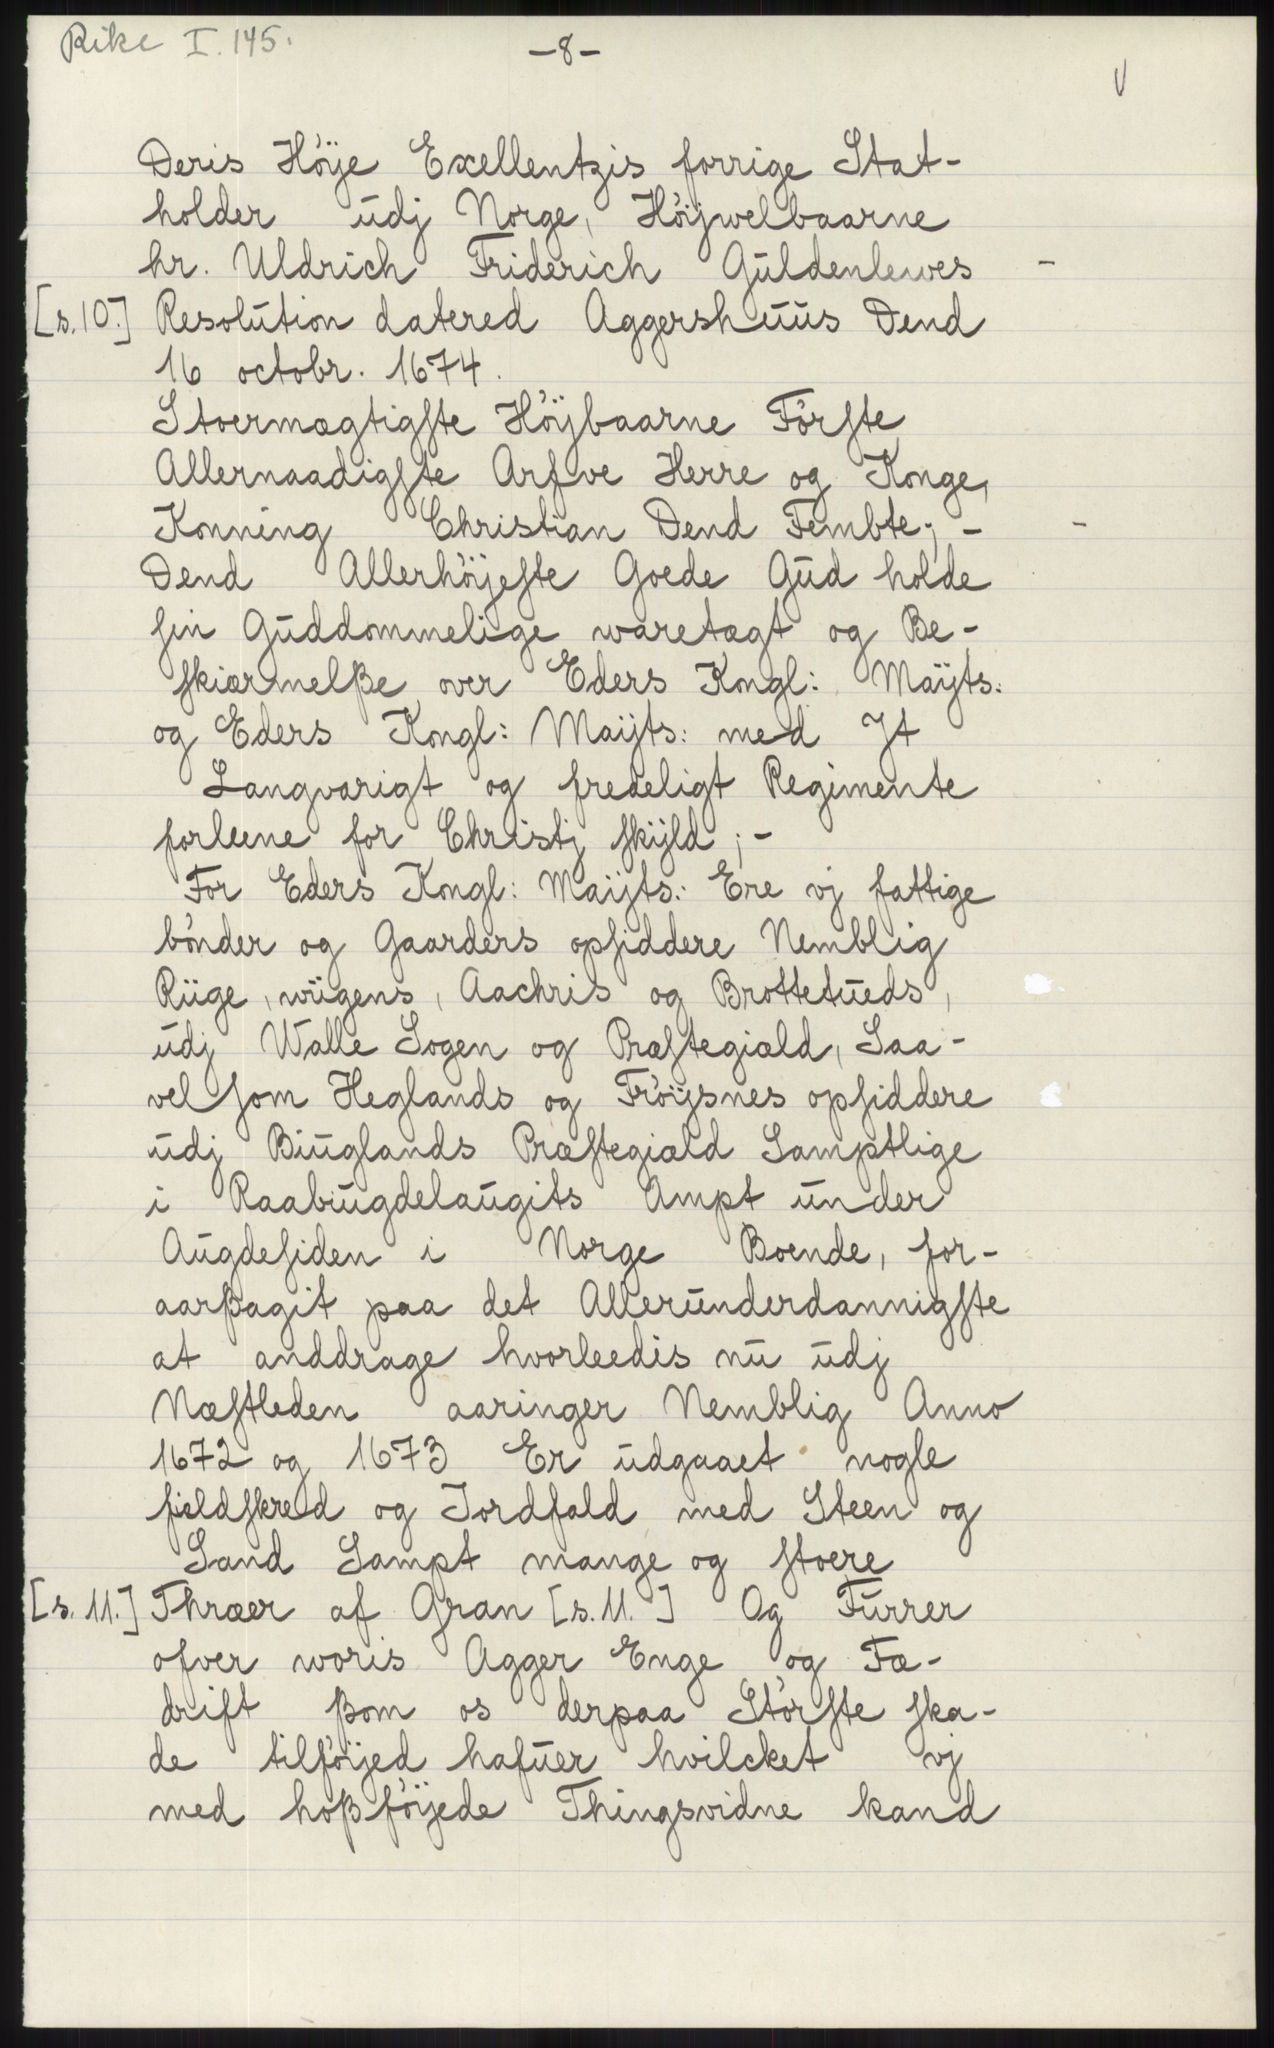 Rike I. 145.
-8-
Deris Höÿe Exellentzis forrige Stat-
holder udj Norge, Höÿwelbaarne
hr. Uldrich Friderich Guldenlewes -
[s.10.] Resolution datered Aggershuus Dend
16 octobr. 1674.
Stoermægtigste Höÿbaarne Förste
Allernaadigste Arfve Herre og Konge,
Konning Christian Dend Fembte; -
Dend Allerhöÿeste Goede Gud holde
sin Guddommelige waretægt og Be-
skiærmelße over Eders Kongl: Maÿts:
og Eders Kongl: Maÿts: med It
Langvarigt og fredeligt Regimente
forleene for Christj skÿld; -
For Eders Kongl: Maÿts: Ere vj fattige
bönder og Gaarders opsiddere Nemblig
Riige, wiigens, Aachris og Brottetueds,
udj Walle Sogen og Præstegiæld, Saa-
vel som Heglands og Fröÿsnes opsiddere
udj Biuglands Præstegiæld Samptlige
i Raabugdelaugits Ampt under
Augdesiden i Norge Boende, for-
aarßagit paa det Allerunderdannigste
at anddrage hvorleedis nu udj
Næstleden aaringer Nemblig Anno
1672 og 1673 Er udgaaet nogle
fieldskred og Jordfald med Steen og
Sand Sampt mange og stoere
[s. 11.] Thræer af Gran [s.11.] Og Furrer
ofver woris Agger Enge og Fæ-
drift ßom os derpaa Störste ska-
de tilföÿed hafuer hvilcket vj
med hoßföÿede Thingsvidne kand